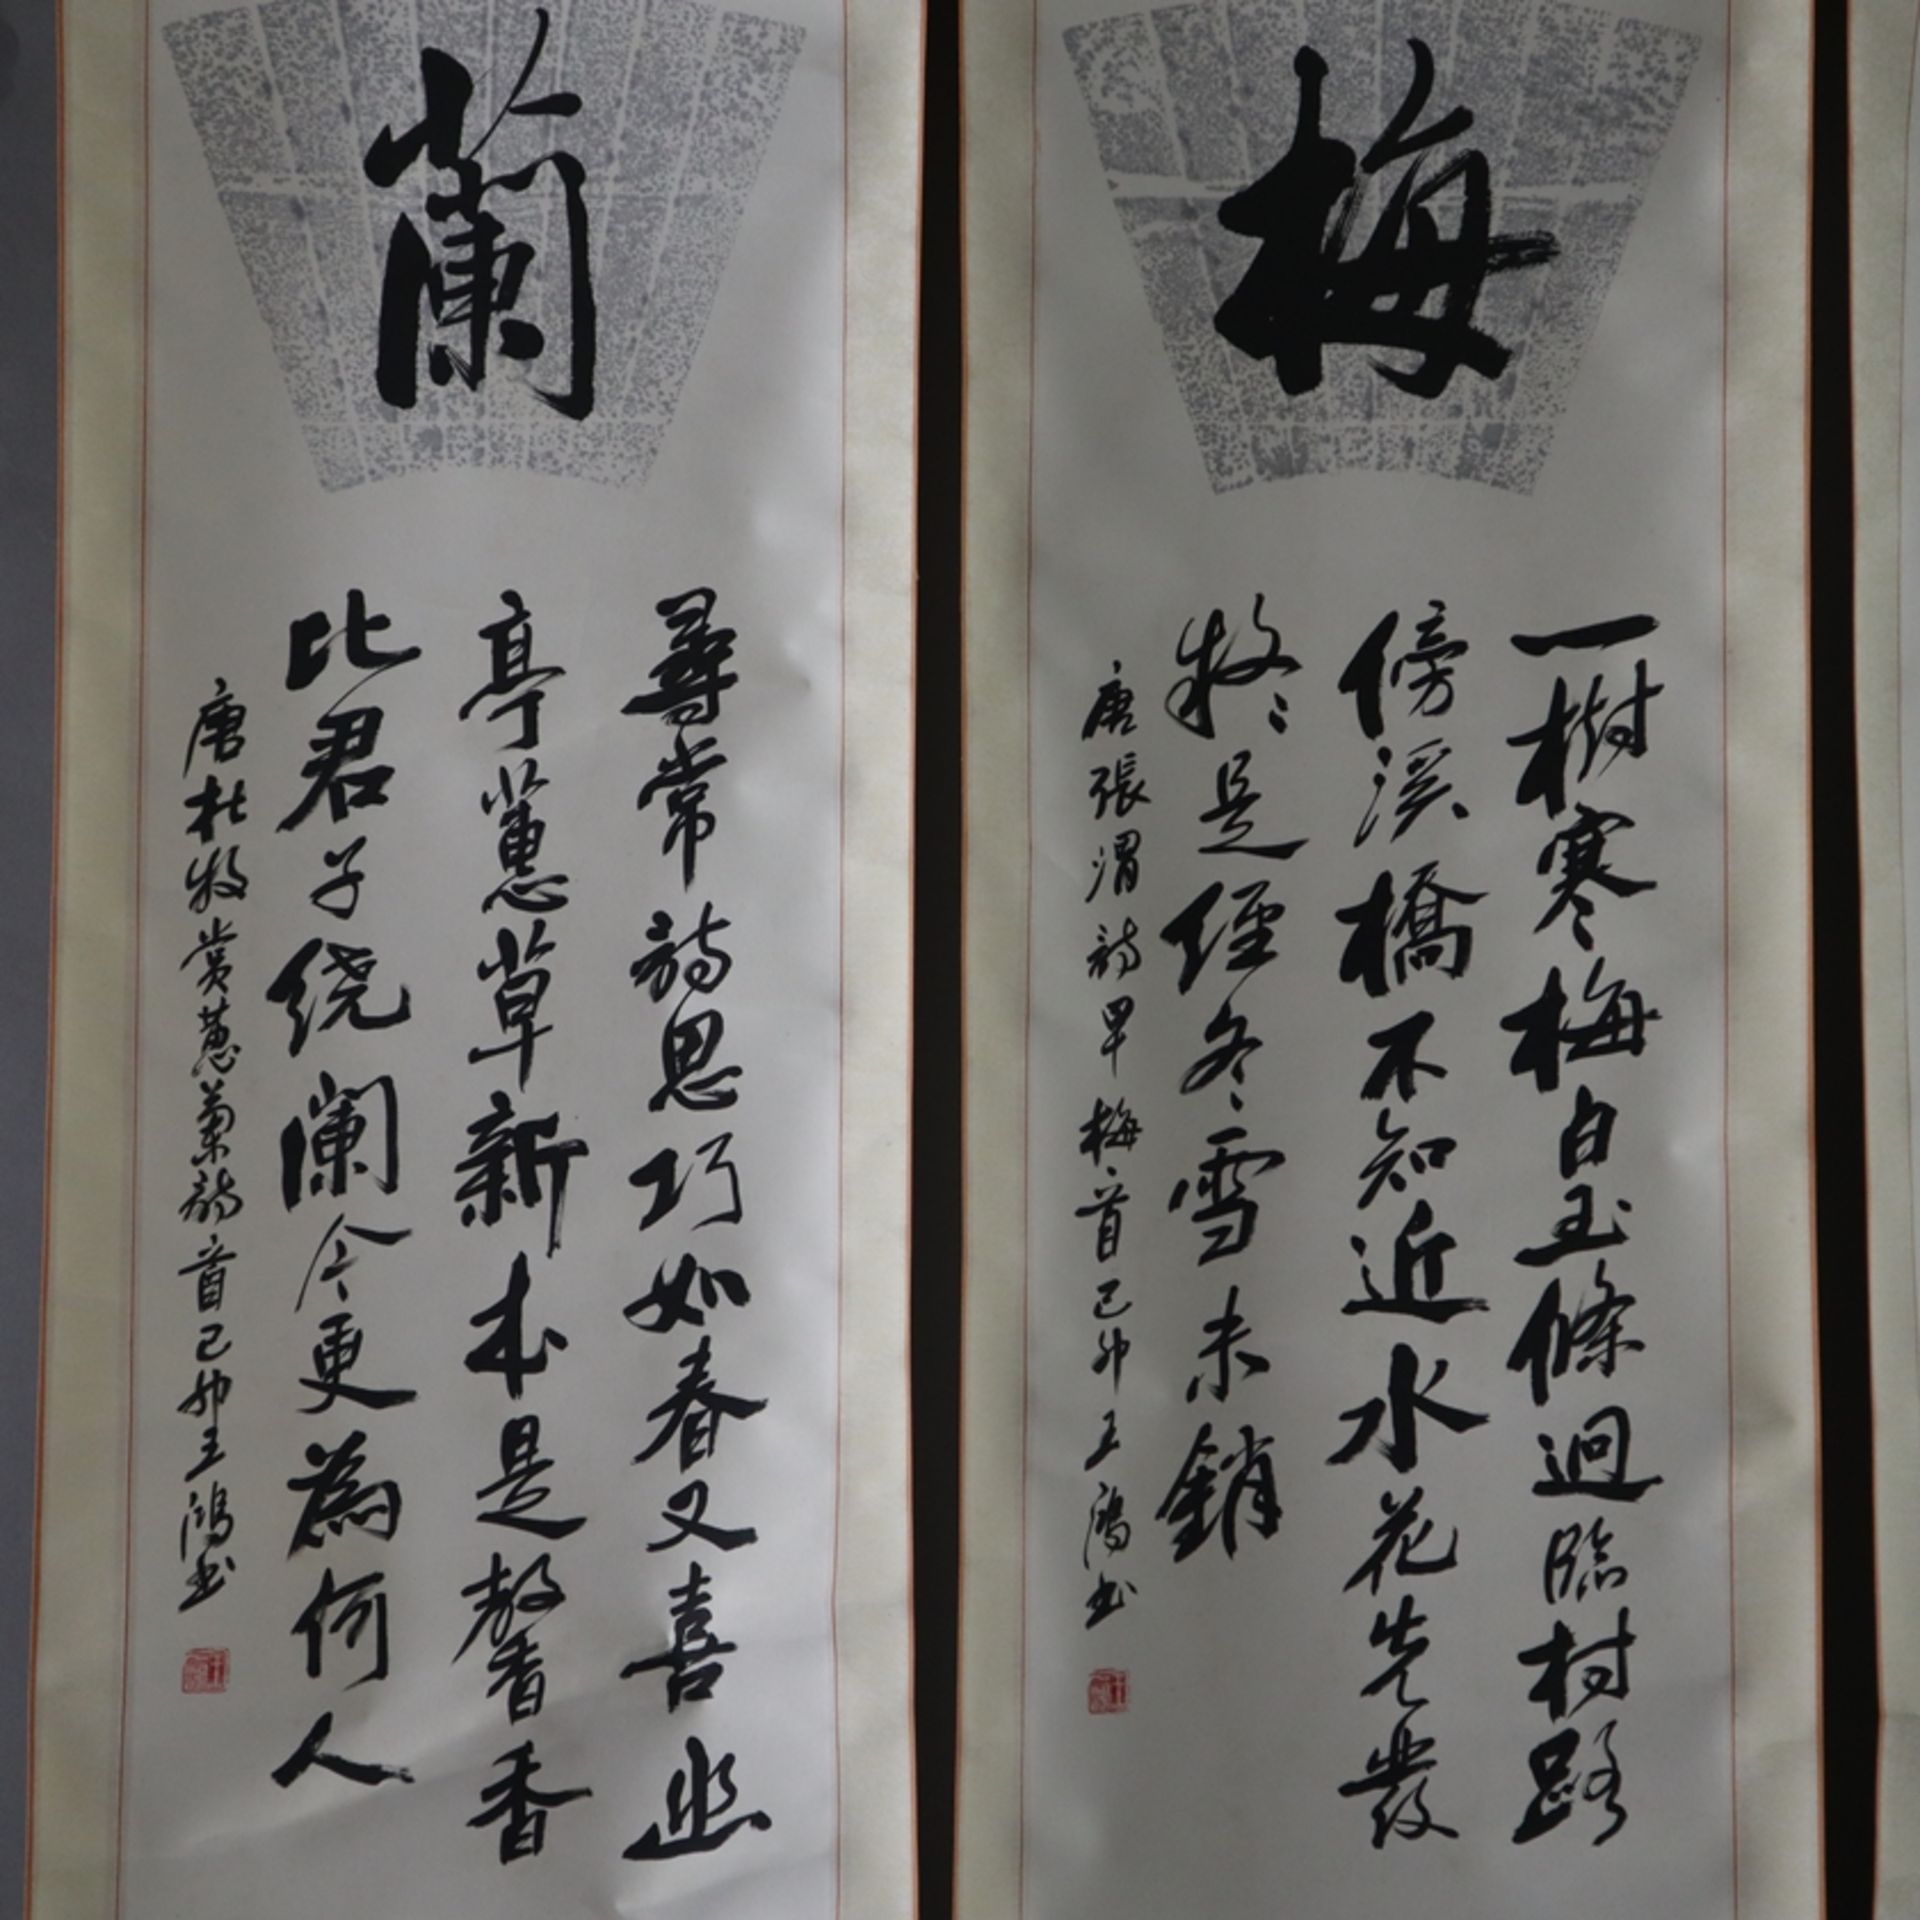 梅
一樹寒梅白玉條迥臨村路
傍溪橋不知近水花先發
疑是經冬雪未銷
唐張渭詩早梅一首己卯王鴻书
蘭
尋常詩思巧如春又喜幽
亭蕙草新本是馨香
比君子绕闌今更為何人
唐杜牧賞蕙蘭詩首己卯王鴻书